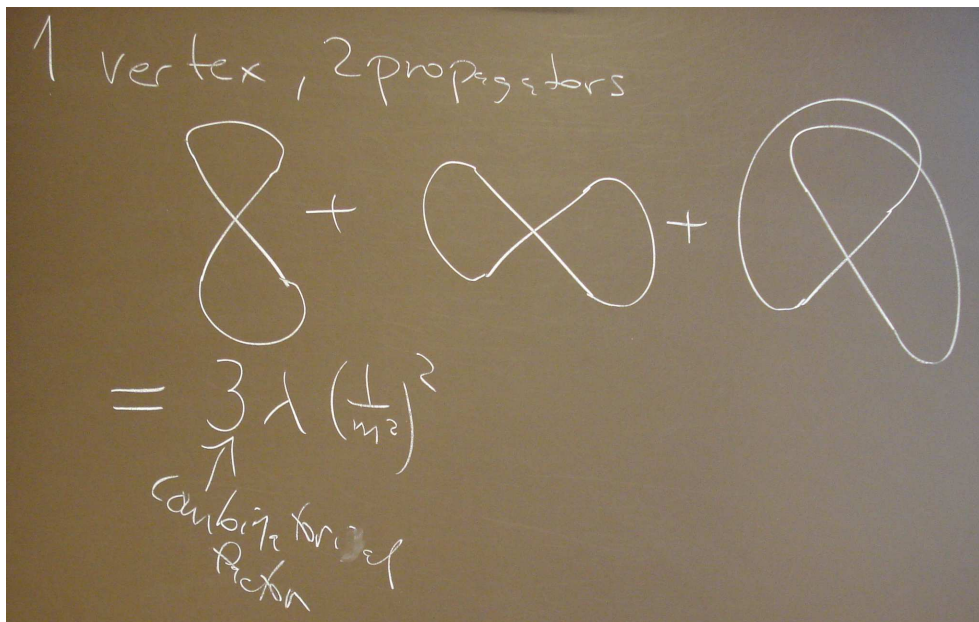 1 vertex, 2 propagators
+ +
= 3 λ (1/m²)²
↑
combinatorial
factor